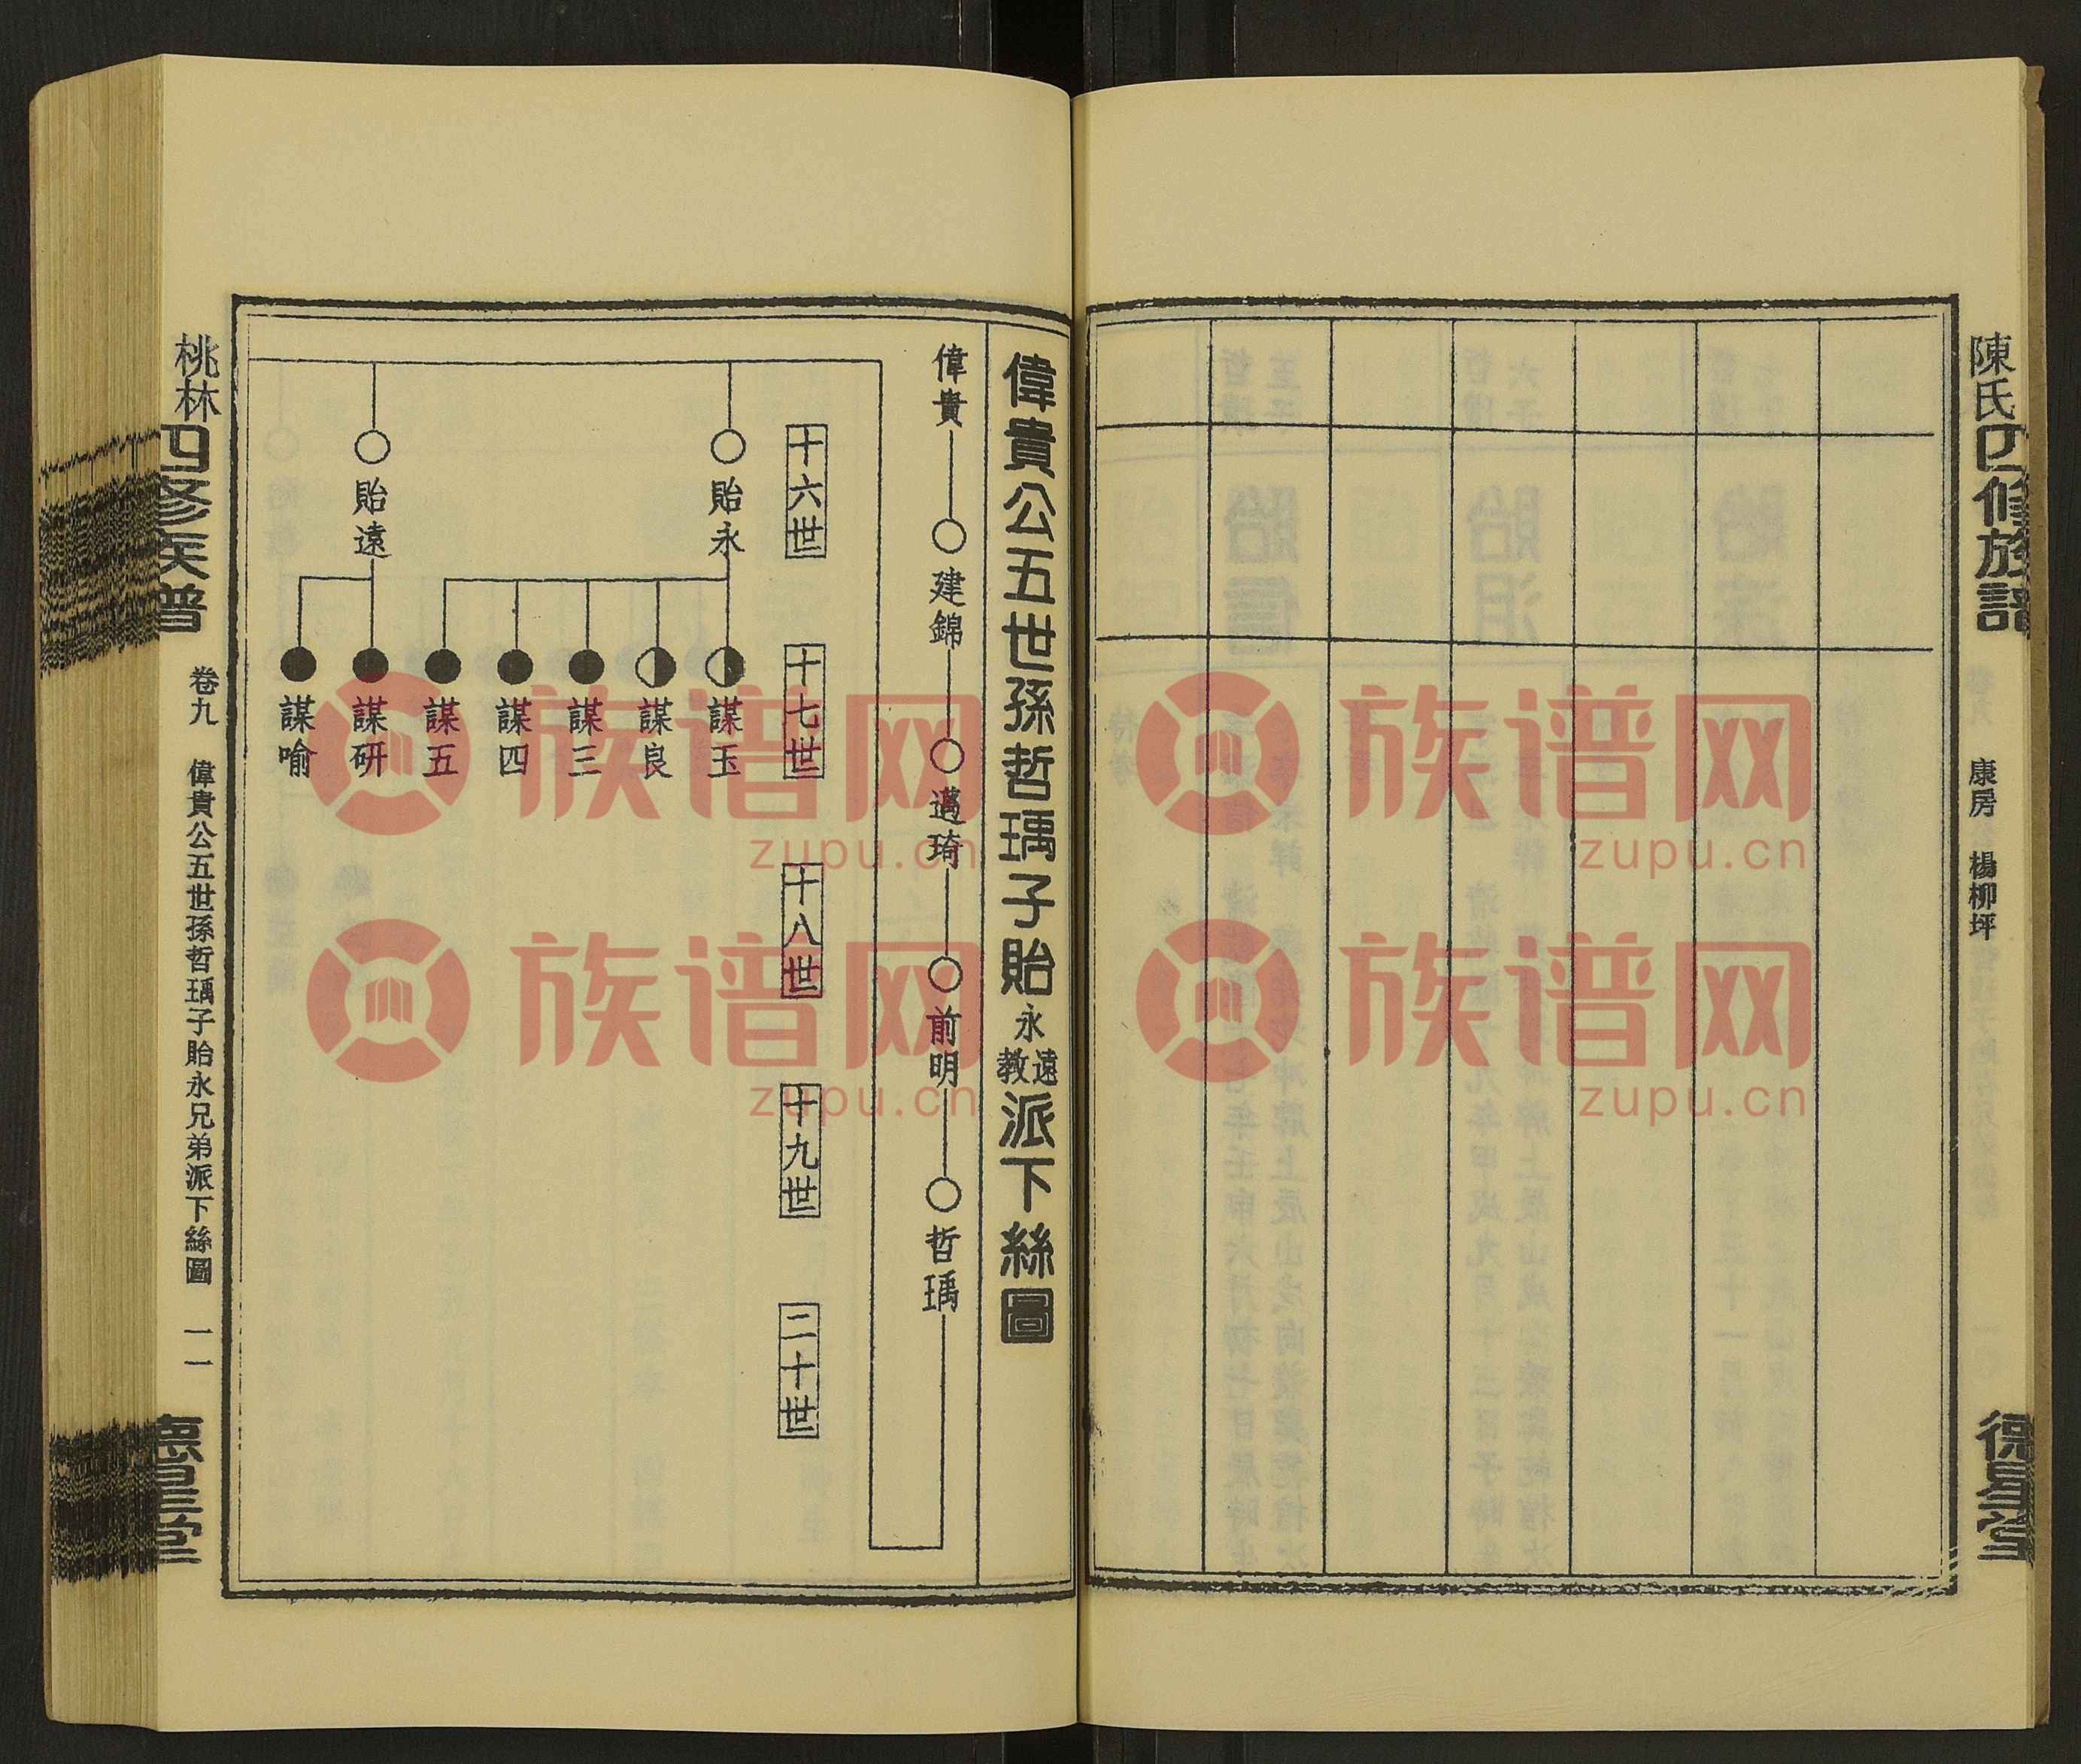 陳氏四修族譜
康房 楊柳坪
德星堂
偉貴公五世孫哲瑀子貽永遠教派下絲圖
偉貴
建錦
邁琦
前明
哲瑀
十六世
十七世
十八世
十九世
二十世
貽永
謀玉
謀良
謀三
謀四
謀五
貽遠
謀研
謀喻
桃林四修族譜
卷九
偉貴公五世孫哲瑀子貽永兄弟派下絲圖
一一
德星堂
族谱网
zupu.cn
族谱网
zupu.cn
族谱网
zupu.cn
族谱网
zupu.cn